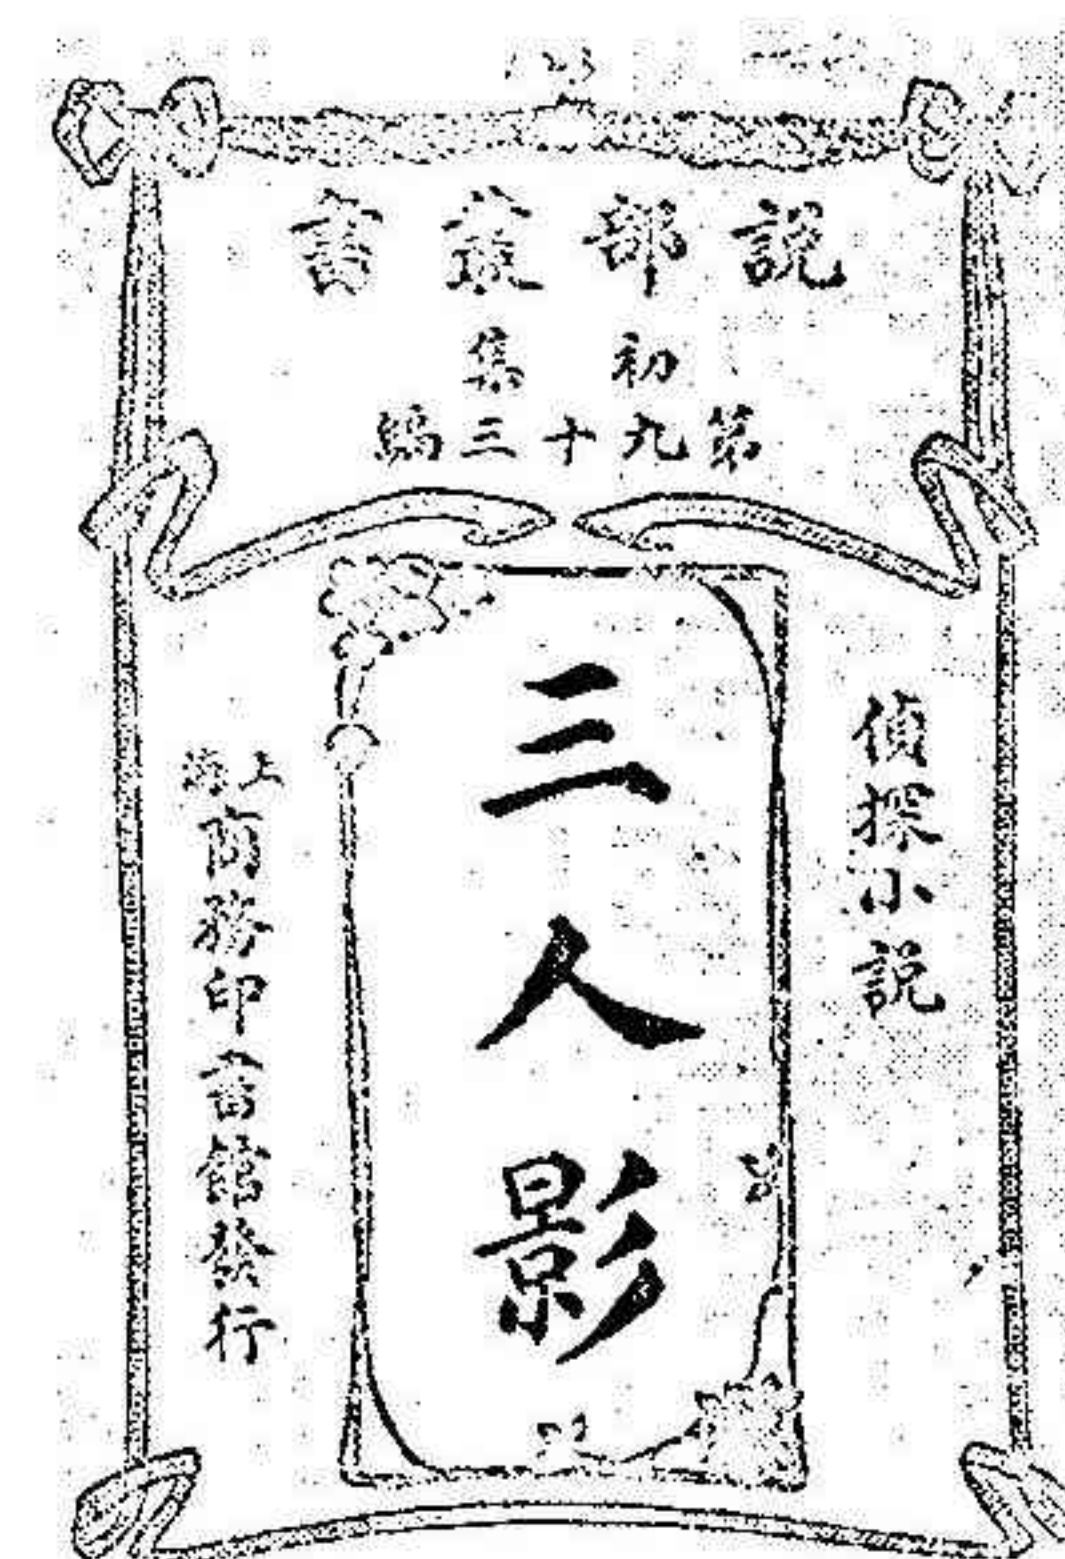 說部叢書
初集
第九十三編
偵探小說
三人影
上海商務印書館發行